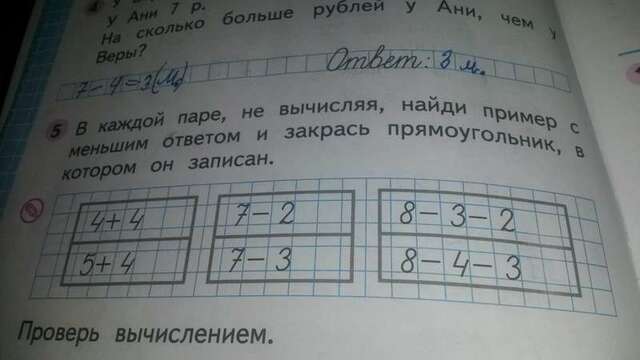 У Ани 7 р.
На сколько больше рублей у Ани, чем у
Веры?
Ответ: 3 м.
5 В каждой паре, не вычисляя, найди пример с
меньшим ответом и закрась прямоугольник, в
котором он записан.
4+4 7−2 8−3−2
5+4 7−3 8−4−3
Проверь вычислением.